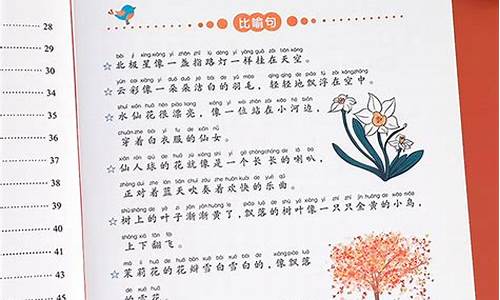 比喻句
běi jí xīng xiàng yì zhǎn zhǐ lù dēng yí yàng guà zài tiān kōng
☆北极星像一盏指路灯一样挂在天空。
yún cai xiàng yì duǒ duǒ jié bái de yǔ máo qīng qīng de piāo fú zài kōng zhōng
☆云彩像一朵朵洁白的羽毛，轻轻地飘浮在空中。
shuǐ xiān huā hěn piào liang xiàng yí wèi zhàn zài xiǎo hé biān
☆水仙花很漂亮，像一位站在小河边，
chuān zhe bái yī fu de xiān nǚ
穿着白衣服的仙女。
xiān rén qiú de huā jiù xiàng shì yí gè cháng cháng de lǎ ba
☆仙人球的花就像是一个长长的喇叭，
zhèng duì zhe lán tiān chuī zòu zhe huān kuài de yuè qǔ
正对着蓝天吹奏着欢快的乐曲。
shù shàng de yè zi jiàn jiàn huáng le piāo luò de shù yè xiàng yì zhī zhī jīn huáng de xiǎo niǎo
☆树上的叶子渐渐黄了，飘落的树叶像一只只金黄的小鸟，
shàng xià fān fēi
上下翻飞。
mò lì huā de huā bàn xuě bái xuě bái de xiàng piāo luò
☆茉莉花的花瓣雪白雪白的，像飘落
的雪花。
28
34
35
36
37
38
39
40
41
45